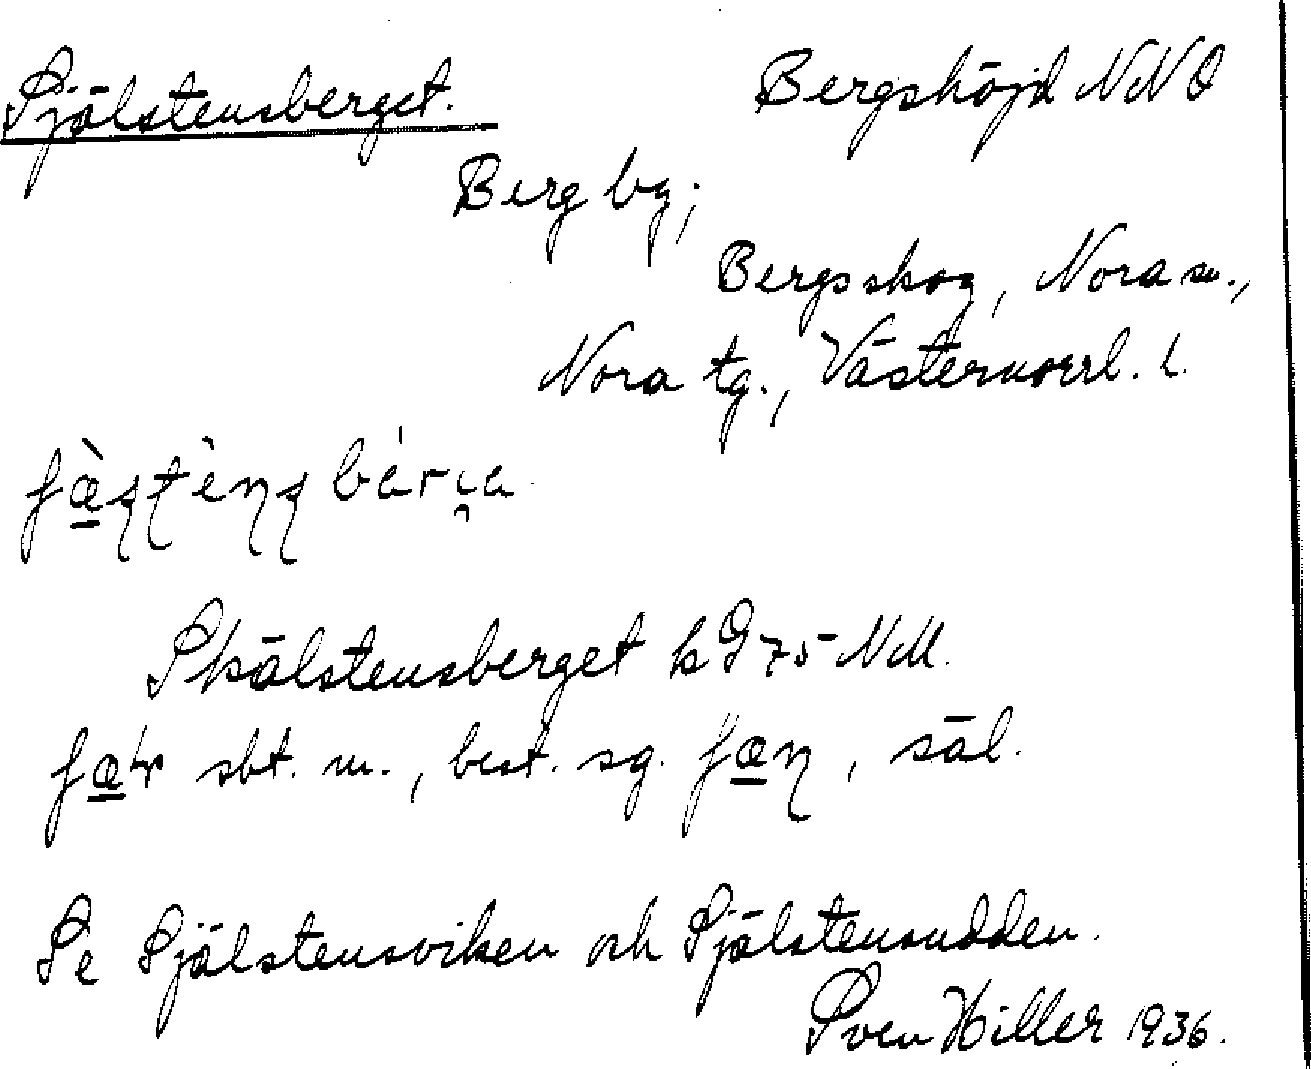 Själstensberget.
Bergshöjd NNO
Berg by;
Bergsskog, Nora sn.,
Nora tg., Västernorrl. l.
Skälstensberget k 975 NM.
sbt. m., best. sg. , säl.
Se Själstensviken och Själstensudden.
Sven Hiller 1936.